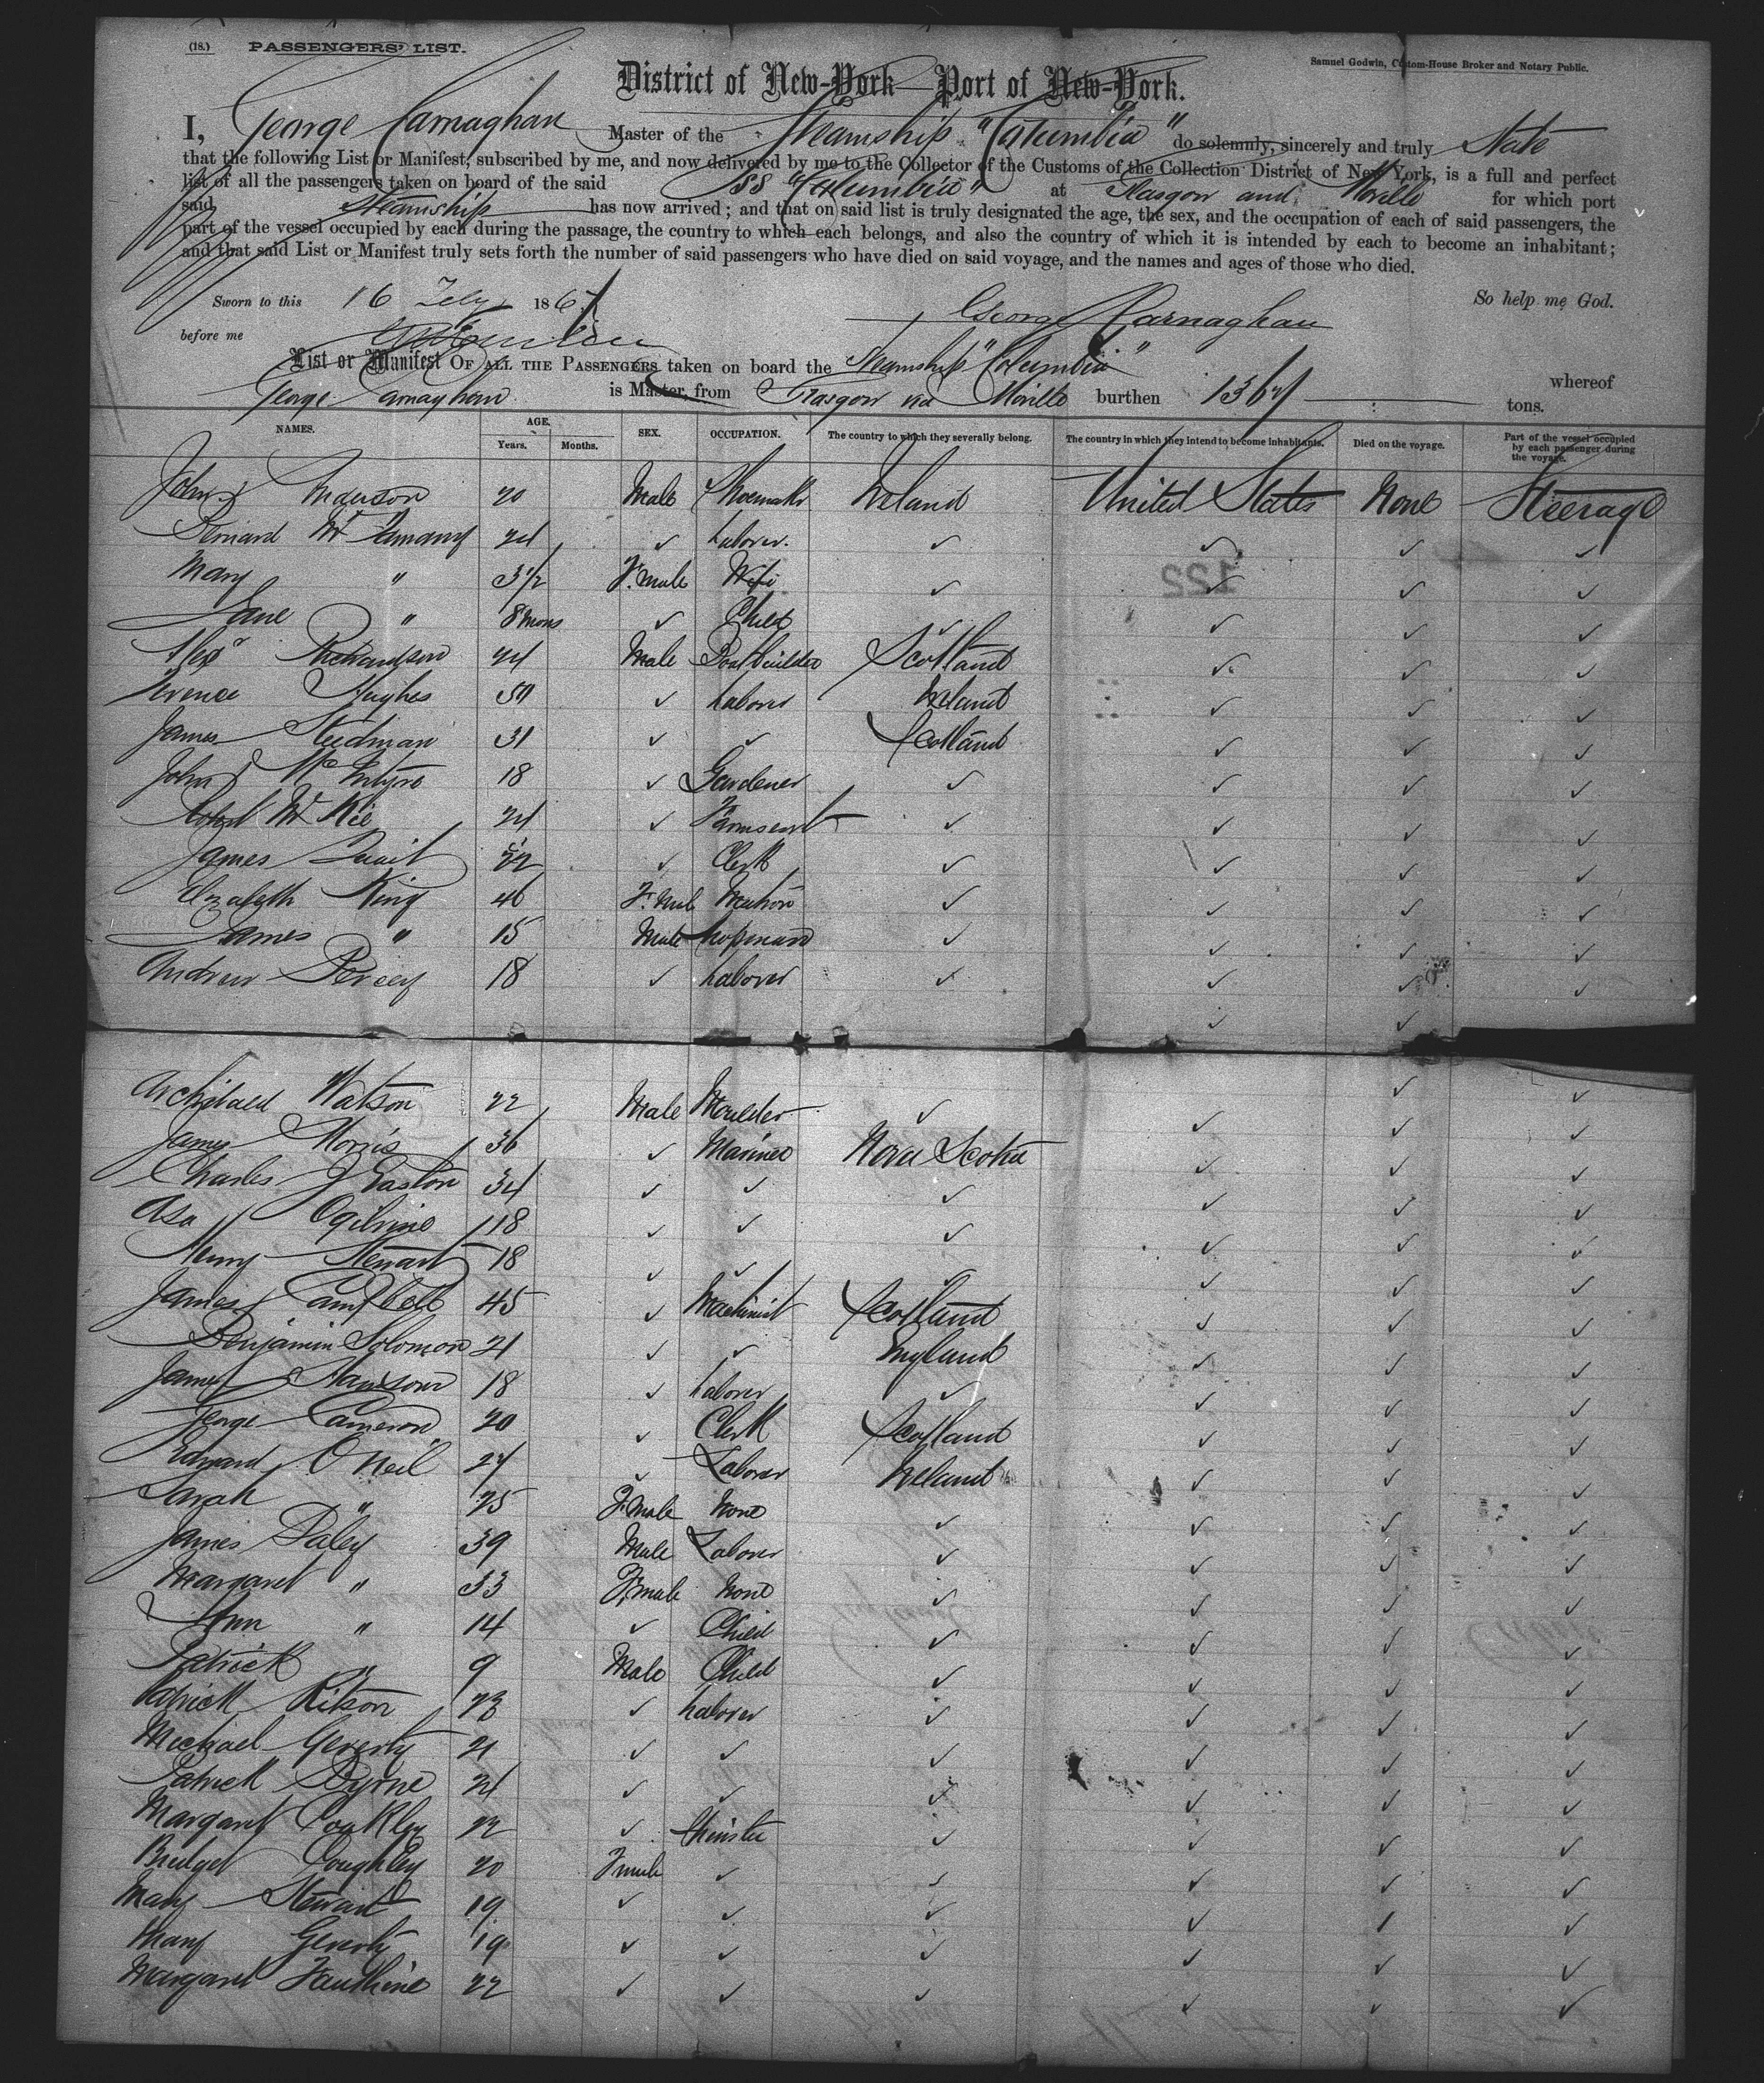 (18.) PASSENGERS' LIST.
Samuel Godwin, Custom-House Broker and Notary Public.
District of New-York—Port of New-York.
I, George Carnaghan Master of the Steamship "Columbia" do solemnly, sincerely and truly State
that the following List or Manifest, subscribed by me, and now delivered by me to the Collector of the Customs of the Collection District of New York, is a full and perfect
list of all the passengers taken on board of the said SS "Columbia" at Glasgow and Moville for which port
said Steamship has now arrived; and that on said list is truly designated the age, the sex, and the occupation of each of said passengers, the
part of the vessel occupied by each during the passage, the country to which each belongs, and also the country of which it is intended by each to become an inhabitant;
and that said List or Manifest truly sets forth the number of said passengers who have died on said voyage, and the names and ages of those who died.
So help me God.
Sworn to this 16 Feby 1867
George Carnaghan
before me
List or Manifest OF ALL THE PASSENGERS taken on board the Steamship "Columbia" whereof
George Carnaghan is Master, from Glasgow via Moville burthen 1367 tons.
NAMES. AGE. Years. Months. SEX. OCCUPATION. The country to which they severally belong. The country in which they intend to become inhabitants. Died on the voyage. Part of the vessel occupied by each passenger during the voyage.
John Anderson 20 Male Shoemaker Ireland United States None Steerage
Bernard Mc 24 ✓ Laborer. ✓ ✓ ✓ ✓
Mary " F.male Wife ✓ ✓ ✓ ✓
122
Jane " 8 mons ✓ Child ✓ ✓ ✓ ✓
Alexr Richardson 24 Male Boatbuilder Scotland ✓ ✓ ✓
Terence Hughes 50 ✓ Laborer Ireland ✓ ✓ ✓
James Stedman 31 ✓ ✓ Scotland ✓ ✓ ✓
John McIntyre 18 ✓ Gardener ✓ ✓ ✓ ✓
Robert McKie 24 ✓ Farmservt ✓ ✓ ✓ ✓
James 22 ✓ Clerk ✓ ✓ ✓ ✓
Elizabeth King 46 F.male Matron ✓ ✓ ✓ ✓
James " 15 Male Shopman ✓ ✓ ✓ ✓
Andrew 18 ✓ Laborer ✓ ✓ ✓ ✓
Archibald Watson 22 Male Moulder ✓ ✓ ✓ ✓
James Morris 36 ✓ Mariner Nova Scotia ✓ ✓ ✓
Charles J Easton 34 ✓ ✓ ✓ ✓ ✓ ✓
Asa Ogilvine 18 ✓ ✓ ✓ ✓ ✓ ✓
Henry Stewart 18 ✓ ✓ ✓ ✓ ✓ ✓
James Campbell 45 ✓ Machinist Scotland ✓ ✓ ✓
Benjamin Solomon 21 ✓ ✓ England ✓ ✓ ✓
James 18 ✓ Laborer ✓ ✓ ✓ ✓
George Cameron 20 ✓ Clerk Scotland ✓ ✓ ✓
Edward O'Neil 27 ✓ Laborer Ireland ✓ ✓ ✓
Sarah " 25 F.male None ✓ ✓ ✓ ✓
James Daley 39 Male Laborer ✓ ✓ ✓ ✓
Margaret " 33 F.male None ✓ ✓ ✓ ✓
Ann " 14 ✓ Child ✓ ✓ ✓ ✓
Patrick " 9 Male Child ✓ ✓ ✓ ✓
Patrick Kitson 23 ✓ Laborer ✓ ✓ ✓ ✓
Michael Geverty 21 ✓ ✓ ✓ ✓ ✓ ✓
Patrick Byrne 24 ✓ ✓ ✓ ✓ ✓ ✓
Margaret Coakley 22 ✓ ✓ ✓ ✓ ✓
Bridget Coughley 20 Fmale ✓ ✓ ✓ ✓ ✓
Mary Stewart 19 ✓ ✓ ✓ ✓ ✓
Mary Geverty 19 ✓ ✓ ✓ ✓ ✓ ✓
Margaret 22 ✓ ✓ ✓ ✓ ✓ ✓